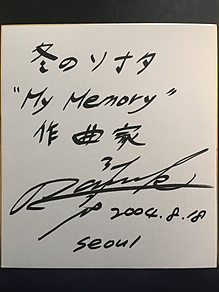 冬のソナタ
"My Memory"
作曲家
2004.8.18
Seoul